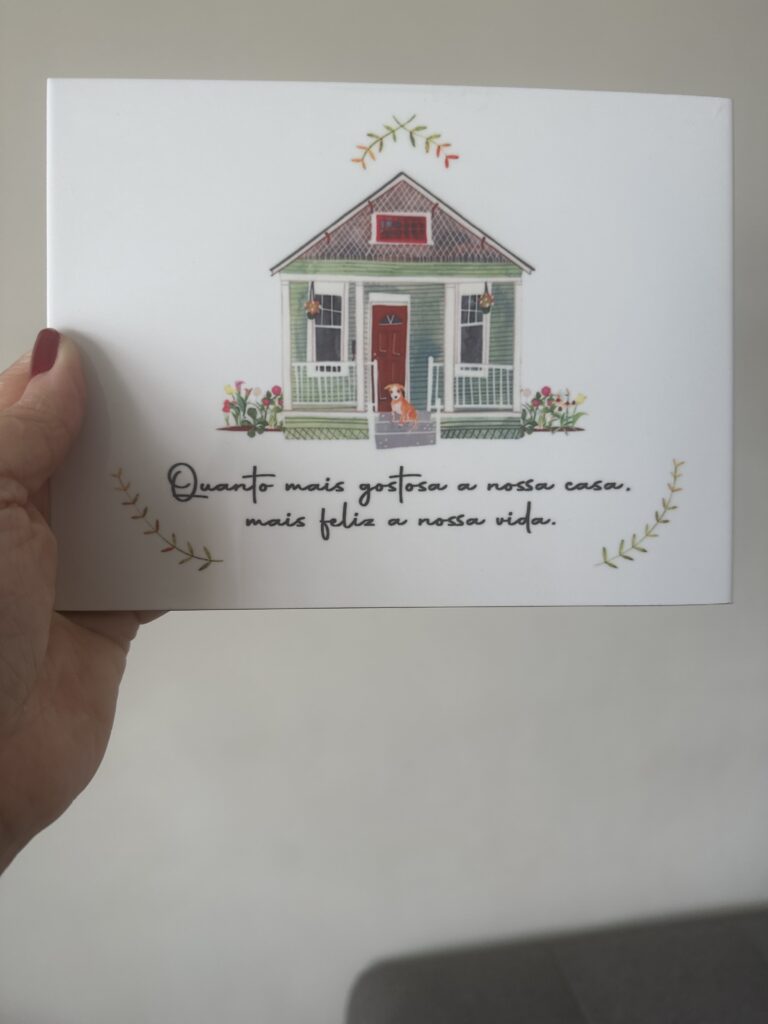 Quanto mais gostosa a nossa casa.
mais feliz a nossa vida.